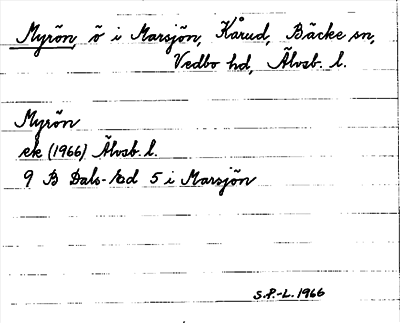 Myrön, ö i Marsjön, Kårud, Bäcke sn,
Vedbo hd, Älvsb. l.
Myrön
ek (1966) Älvsb. l.
9 B Dals-Ed 5 i Marsjön
S.P.-L. 1966